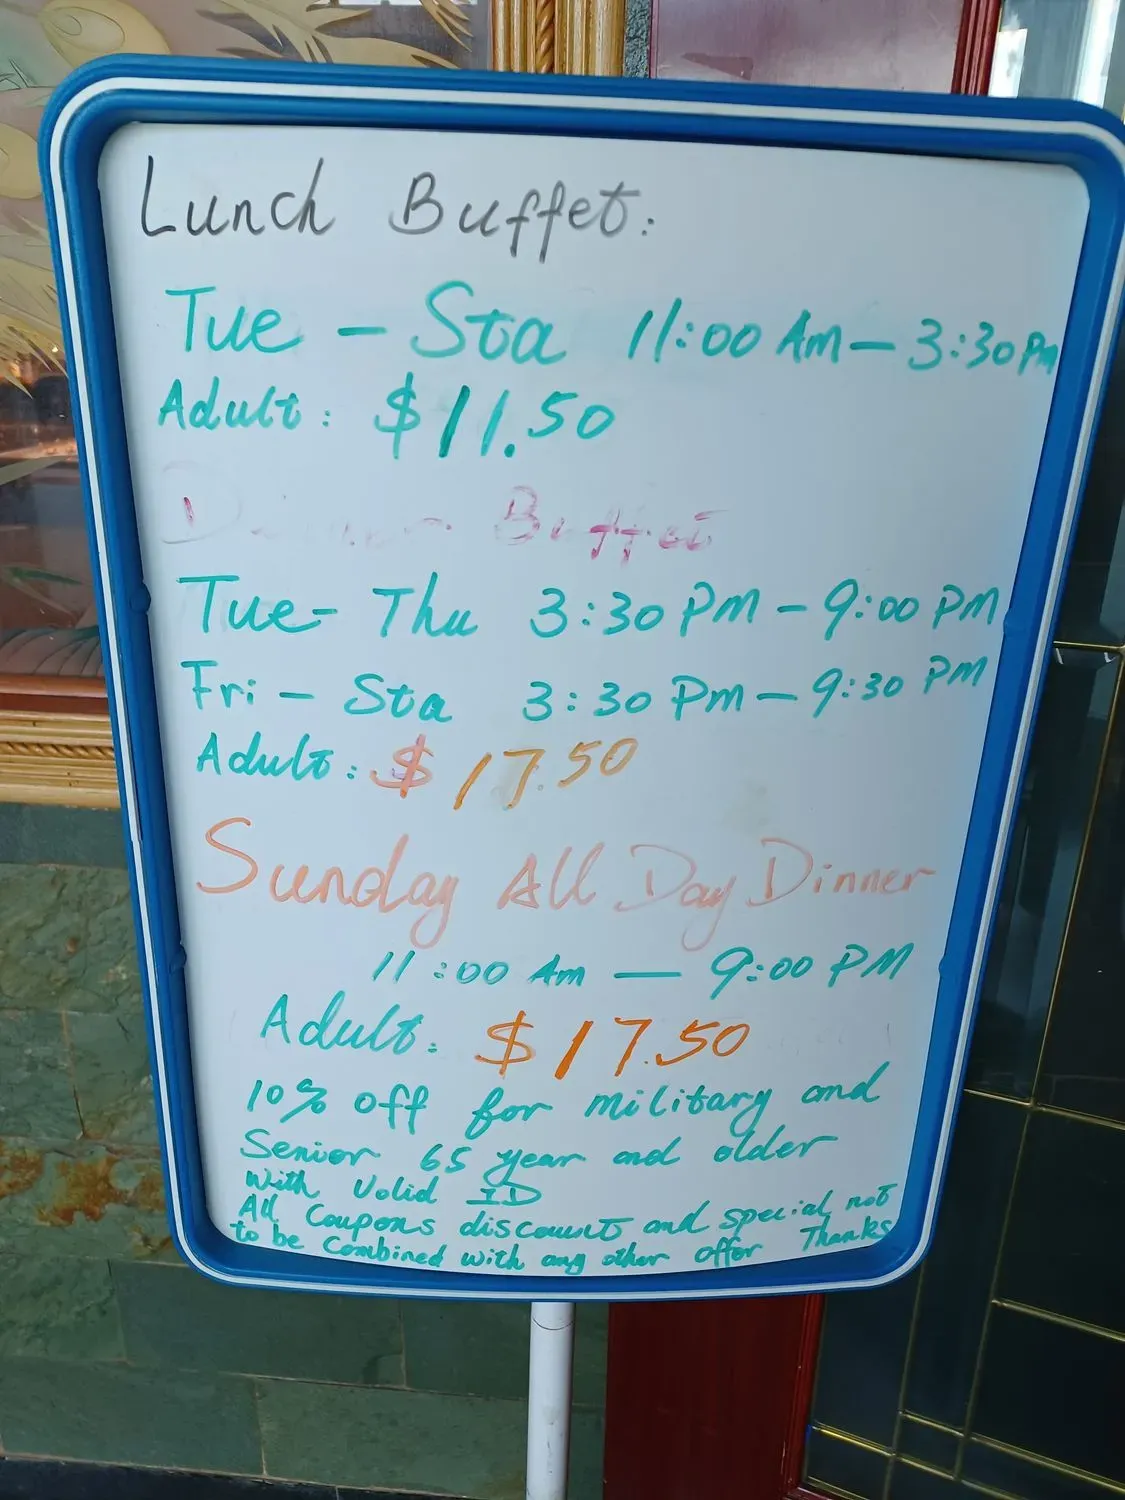 Lunch Buffet:
Tue - Sta 11:00 Am - 3:30 Pm
Adult: $11.50
Dinner Buffet
Tue- Thu 3:30 PM - 9:00 PM
Fri - Sta 3:30 Pm - 9:30 PM
Adult: $17.50
Sunday All Day Dinner
11:00 Am - 9:00 PM
Adult: $17.50
10% off for military and
Senior 65 year and older
With Valid ID
All Coupons discount and special not
to be Combined with any other offer Thanks